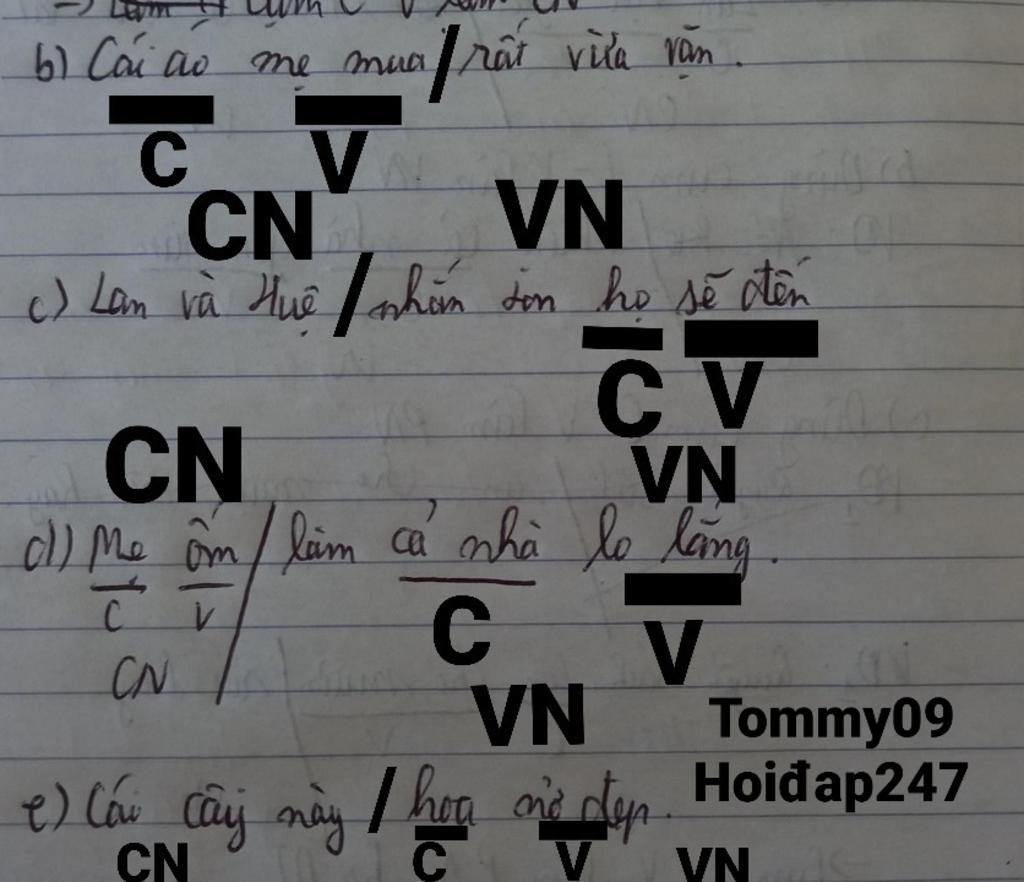 cụm C V làm CN
b) Cái áo mẹ mua / rất vừa vặn.
C V
CN VN
c) Lan và Huệ / nhắn họ sẽ đến
C V
CN VN
d) Mẹ ốm / làm cả nhà lo lắng.
C V C V
CN VN
Tommy09
Hoiđap247
e) Cái cây này / hoa nở đẹp.
CN C V VN